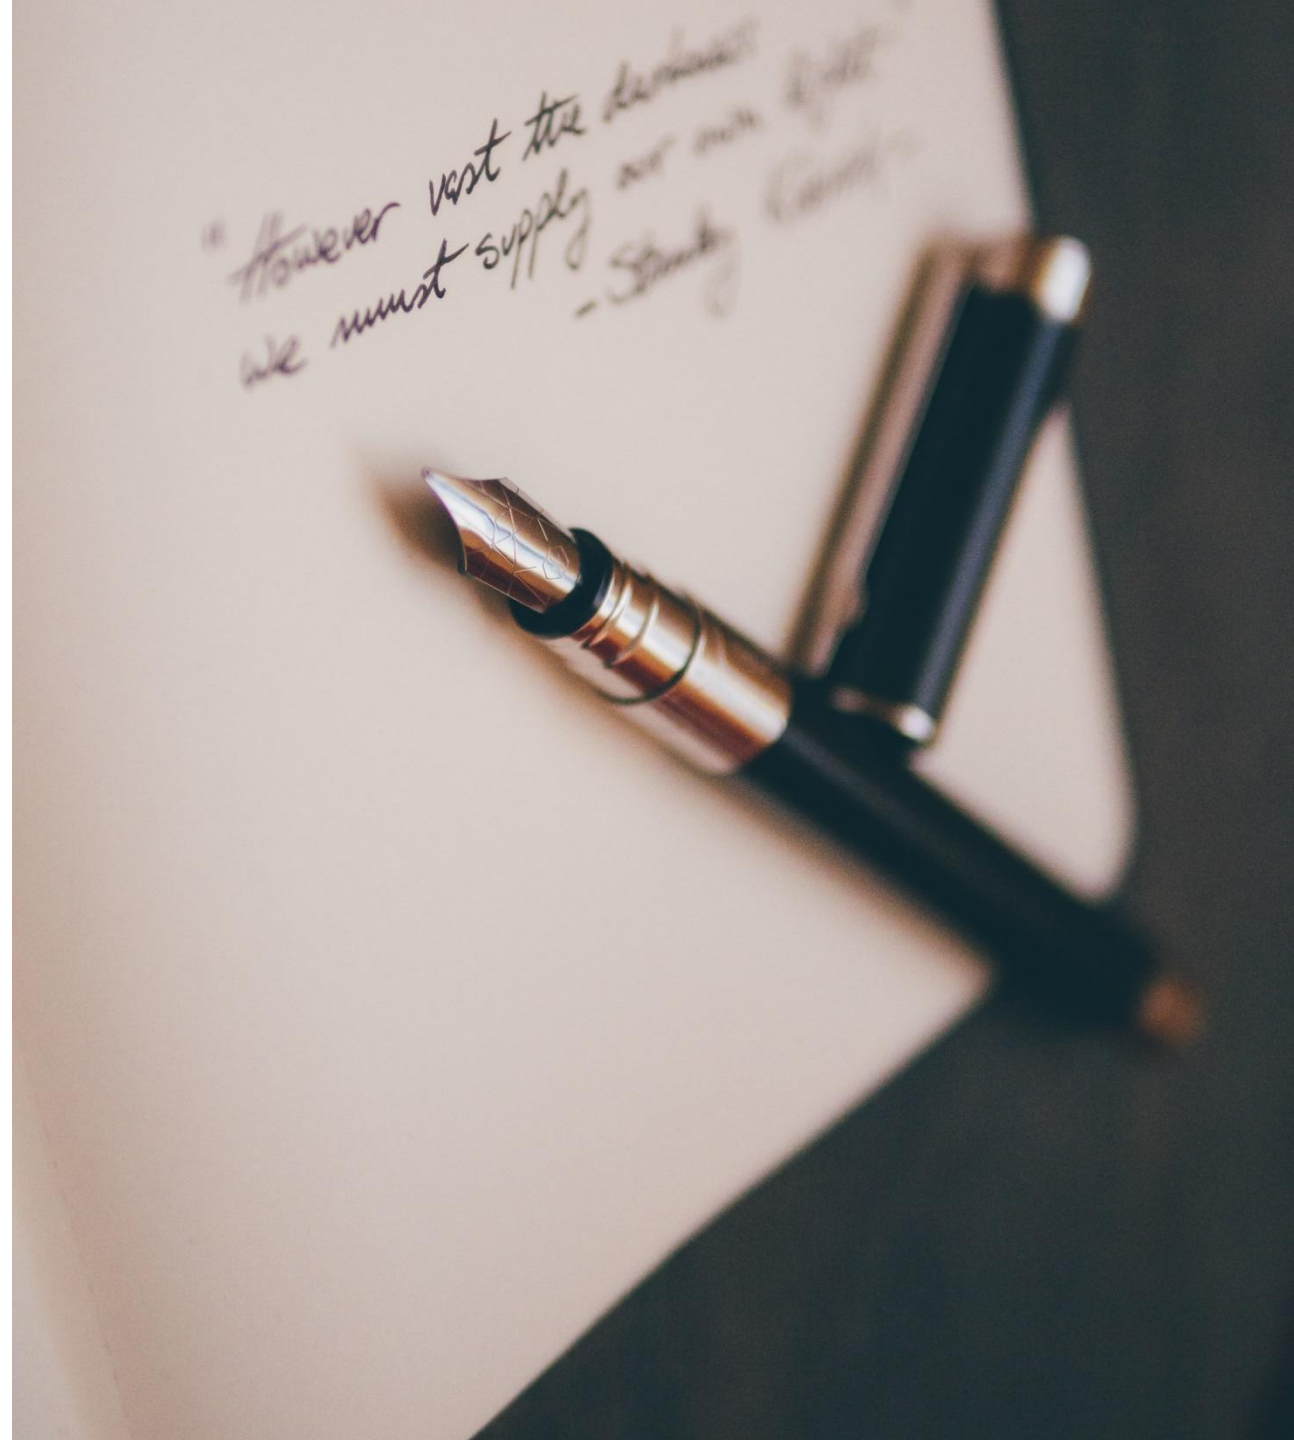 "However vast the darkness
we must supply our own light"
- Stanley Kubrick -